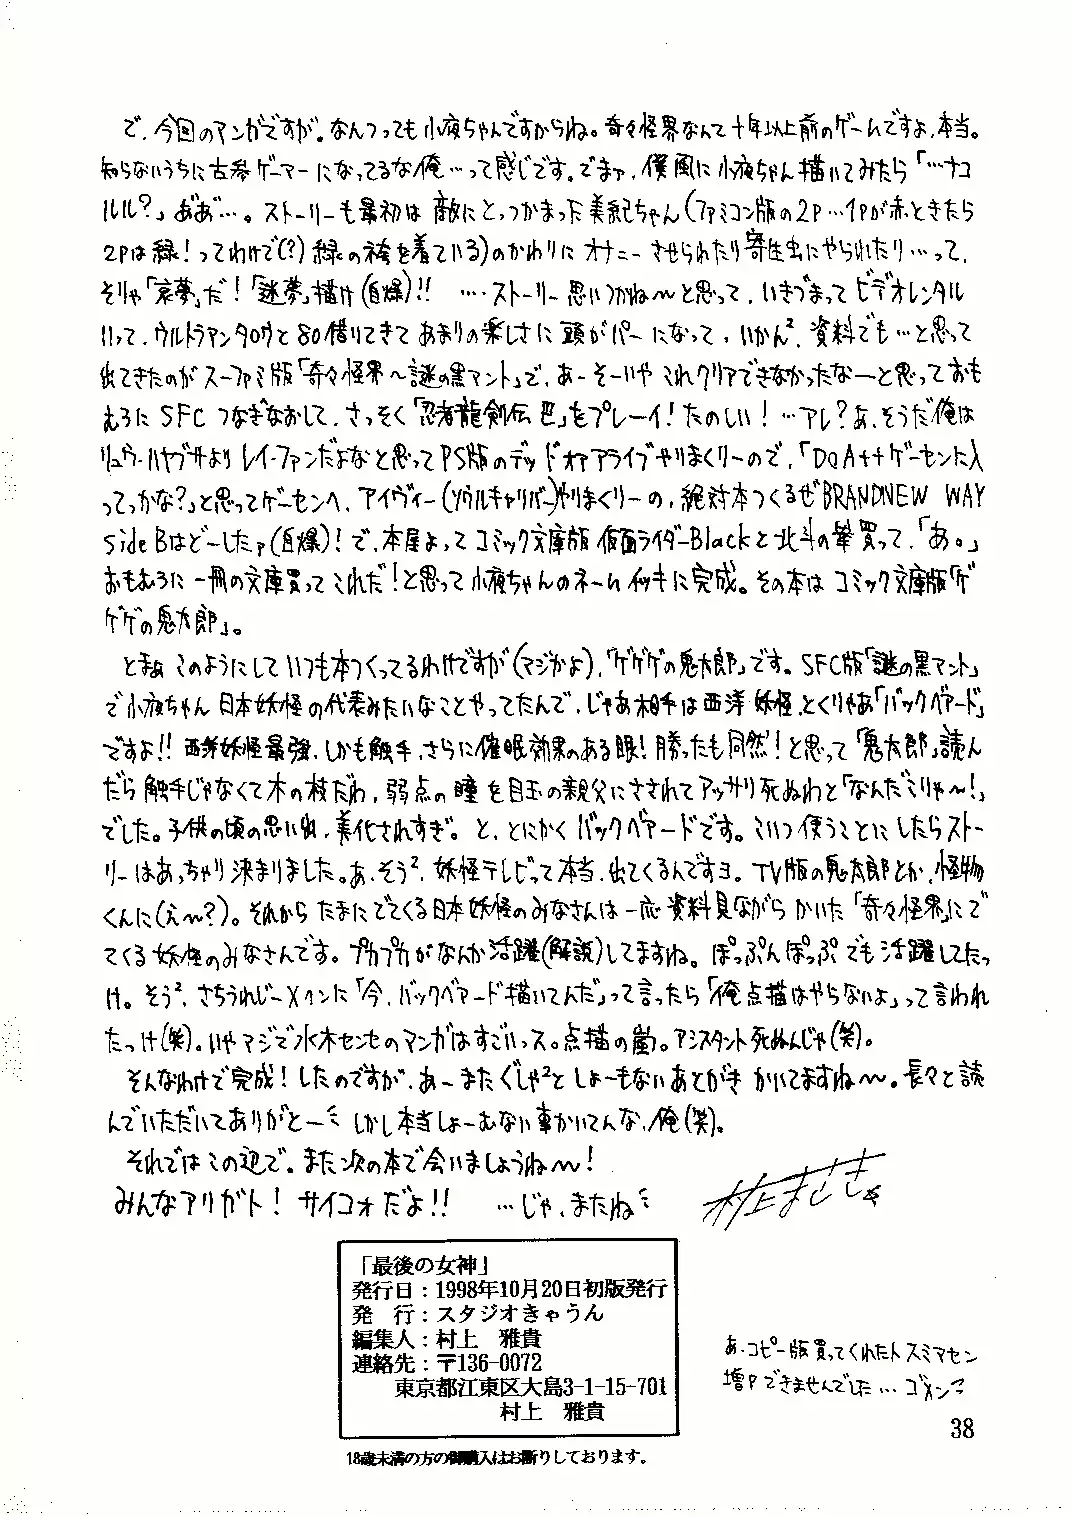 で、今回のマンガですが。なんつっても小夜ちゃんですからね。奇々怪界なんて十年以上前のゲームですよ、本当。
知らないうちに古参ゲーマーになってるな俺…って感じです。でまァ、僕風に小夜ちゃん描いてみたら「…ナコ
ルル？」ああ゛…。ストーリーも最初は敵にとっつかまった美紀ちゃん(ファミコン版の2P…1Pが赤ときたら
2Pは緑！ってわけで(？)緑の袴を着ている)のかわりにオナニーさせられたり寄生虫にやられたり…って、
そりゃ「哀夢」だ！「迷夢」描け(自爆)!! …ストーリー思いつかね〜と思って、いきづまってビデオレンタル
いって、ウルトラマンタロウと80借りてきてあまりの楽しさに頭がパーになって、いかん²、資料でも…と思って
出てきたのがスーファミ版「奇々怪界〜謎の黒マント」で、あーそーいやこれクリアできなかったなーと思っておも
むろにSFCつなぎなおして、さっそく「忍者龍剣伝巴」をプレーイ！たのしい！…アレ？あ、そうだ俺は
リュウ・ハヤブサよりレイ・ファンだよなと思ってPS版のデッドオアアライブやりまくりーので、「DOA++ゲーセンに入
ってっかな？」と思ってゲーセンへ、アイヴィー(ソウルキャリバー)やりまくりーの、絶対本つくるぜBRANDNEW WAY
sideBはどーしたァ(自爆)！で、本屋よってコミック文庫版仮面ライダーBlackと北斗の拳買って、「あ。」
おもむろに一冊の文庫買ってこれだ！と思って小夜ちゃんのネームイッキに完成。その本はコミック文庫版「ゲ
ゲゲの鬼太郎」。
とまぁこのようにしていつも本つくってるわけですが(マジかよ)、「ゲゲゲの鬼太郎」です。SFC版「謎の黒マント」
で小夜ちゃん日本妖怪の代表みたいなことやってたんで、じゃあ相手は西洋妖怪、とくりゃあ「バックベアード」
ですよ!! 西洋妖怪最強、しかも触手、さらに催眠効果のある眼！勝ったも同然！と思って「鬼太郎」読ん
だら触手じゃなくて木の枝だわ、弱点の瞳を目玉の親父にさされてアッサリ死ぬわと「なんだこりゃ〜！」
でした。子供の頃の思い出、美化されすぎ。と、とにかくバックベアードです。こいつ使うことにしたらスト-
リーはあっちゃり決まりました。あ、そう²、妖怪テレビって本当、出てくるんですヨ。TV版の鬼太郎とか、怪物
くんに(え〜？)。それからたまにでてくる日本妖怪のみなさんは一応資料見ながらかいた「奇々怪界」にで
てくる妖怪のみなさんです。プカプカがなんか活躍(解説)してますね。ぽっぷんぽっぷでも活躍してたっ
け。そう²、さちうれじーXクンに「今、バックベアード描いてんだ」って言ったら「俺点描はやらないよ」って言われ
たっけ(笑)。いやマジで水木センセのマンガはすごいっス。点描の嵐。アシスタント死ぬんじゃ(笑)。
そんなわけで完成！したのですが、あーまたぐしゃ²としょーもないあとがきかいてますね〜。長々と読
んでいただいてありがとーミ しかし本当しょーむない事かいてんな、俺(笑)。
それではこの辺で。また次の本で会いましょうね〜！
みんなアリガト！ サイコォだよ!! …じゃ、またねミ
村上まさき
「最後の女神」
発行日：1998年10月20日初版発行
発　行：スタジオきゃうん
編集人：村上　雅貴
連絡先：〒136-0072
東京都江東区大島3-1-15-701
村上　雅貴
18歳未満の方の御購入はお断りしております。
あ、コピー版買ってくれた人スミマセン
増Pできませんでした…ゴメンネ
38